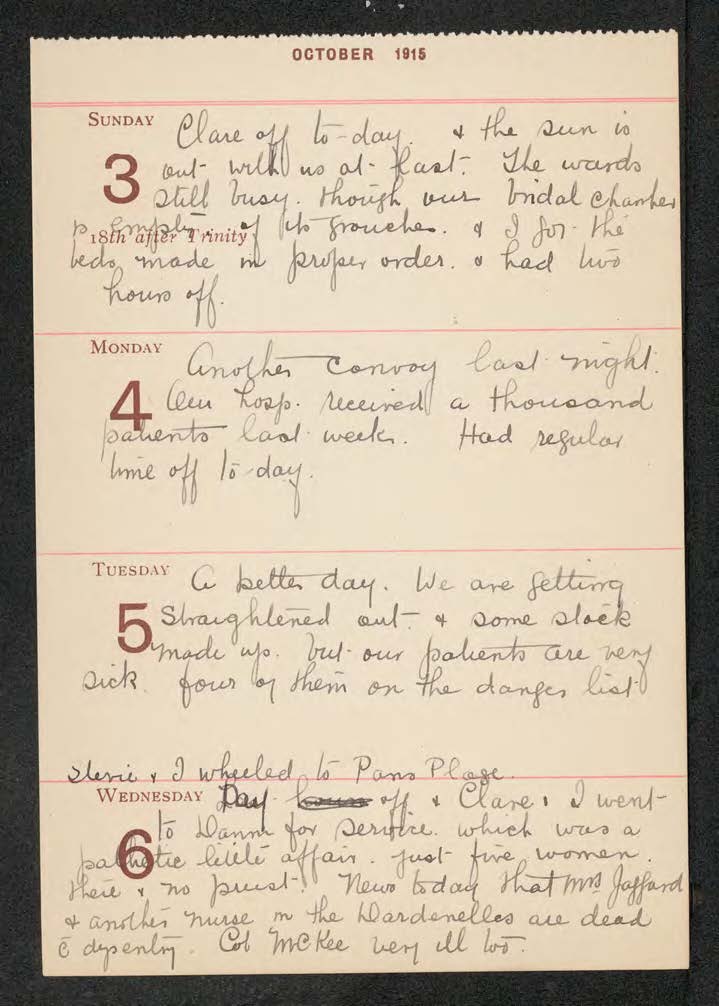 OCTOBER 1915
SUNDAY
3
18th after Trinity
Clare off to-day. & the sun is
out with us at last. The wards
still busy. though our bridal chamber
is empty. of its grouches. & I got the
beds made in proper order. & had two
hours off.
MONDAY
4
Another convoy last night.
Our hosp. received a thousand
patients last week. Had regular
time off to-day.
TUESDAY
5
A better day. We are getting
straightened out. & some stock
made up. but our patients are very
sick. four of them on the danger list
& I wheeled to Paris Plage.
WEDNESDAY
6
Day hours off & Clare & I went
to Danm for service. which was a
pathetic little affair. just five women.
there & no priest. News today that Mrs Jaggard
& another nurse in the Dardenelles are dead
c̄ dysentry. Col McKee very ill too.